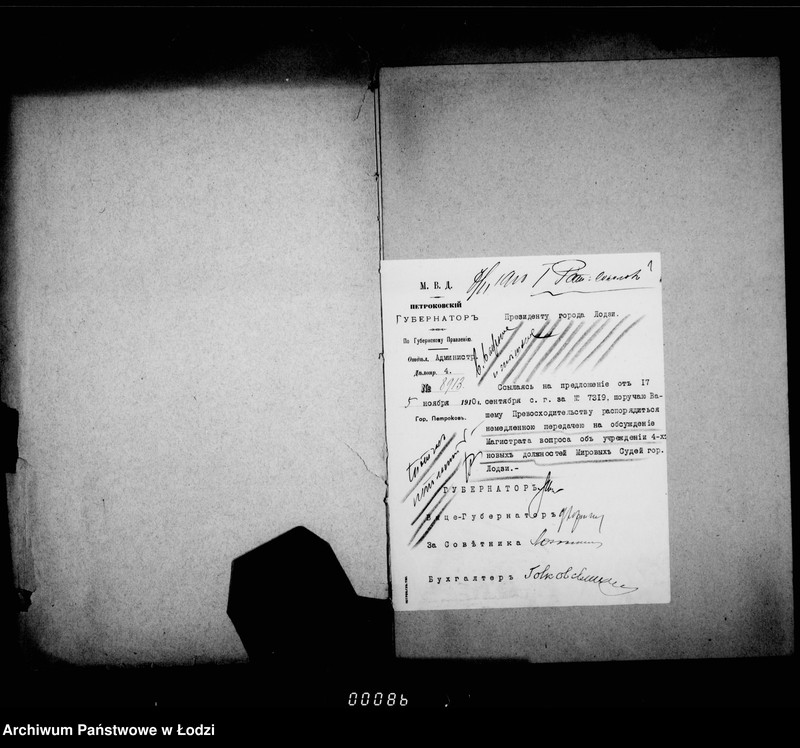 М. В. Д.
ПЕТРОКОВСКІЙ
ГУБЕРНАТОРЪ
По Губернскому Правленію.
Отдѣл. Админист.
Дѣлопр. 4.
№ 8913.
5 ноября 1910 г.
Гор. Петроковъ.
Президенту города Лодзи.
Ссылаясь на предложеніе отъ 17
сентября с. г. за № 7319, поручаю Ва-
шему Превосходительству распорядиться
немедленною передачею на обсужденіе
Магистрата вопроса объ учрежденіи 4-хъ
новыхъ должностей Мировыхъ Судей гор.
Лодзи.-
ГУБЕРНАТОРЪ
Вице-Губернаторъ
За Совѣтника
Бухгалтеръ
00086
Archiwum Państwowe w Łodzi